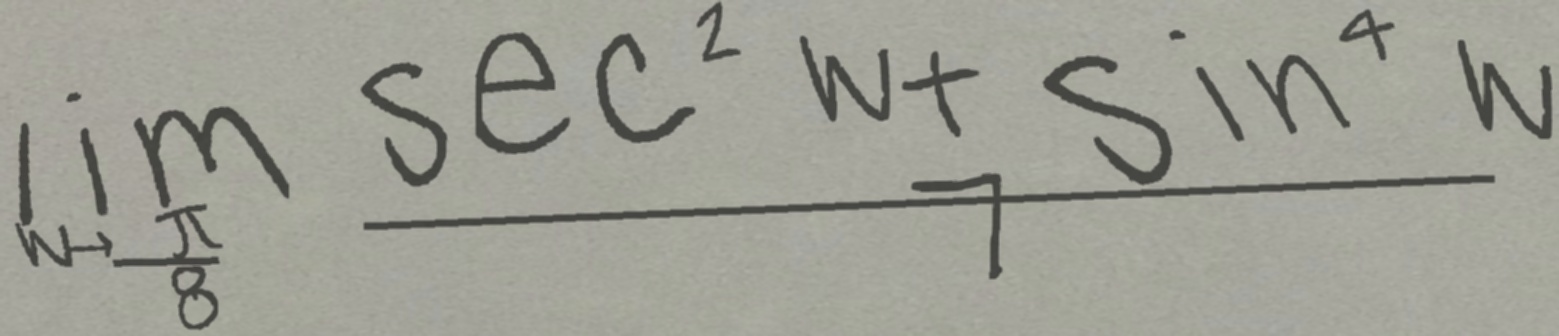 \lim_{w \to \frac{\pi}{8}} \frac{\sec^2 w + \sin^4 w}{7}